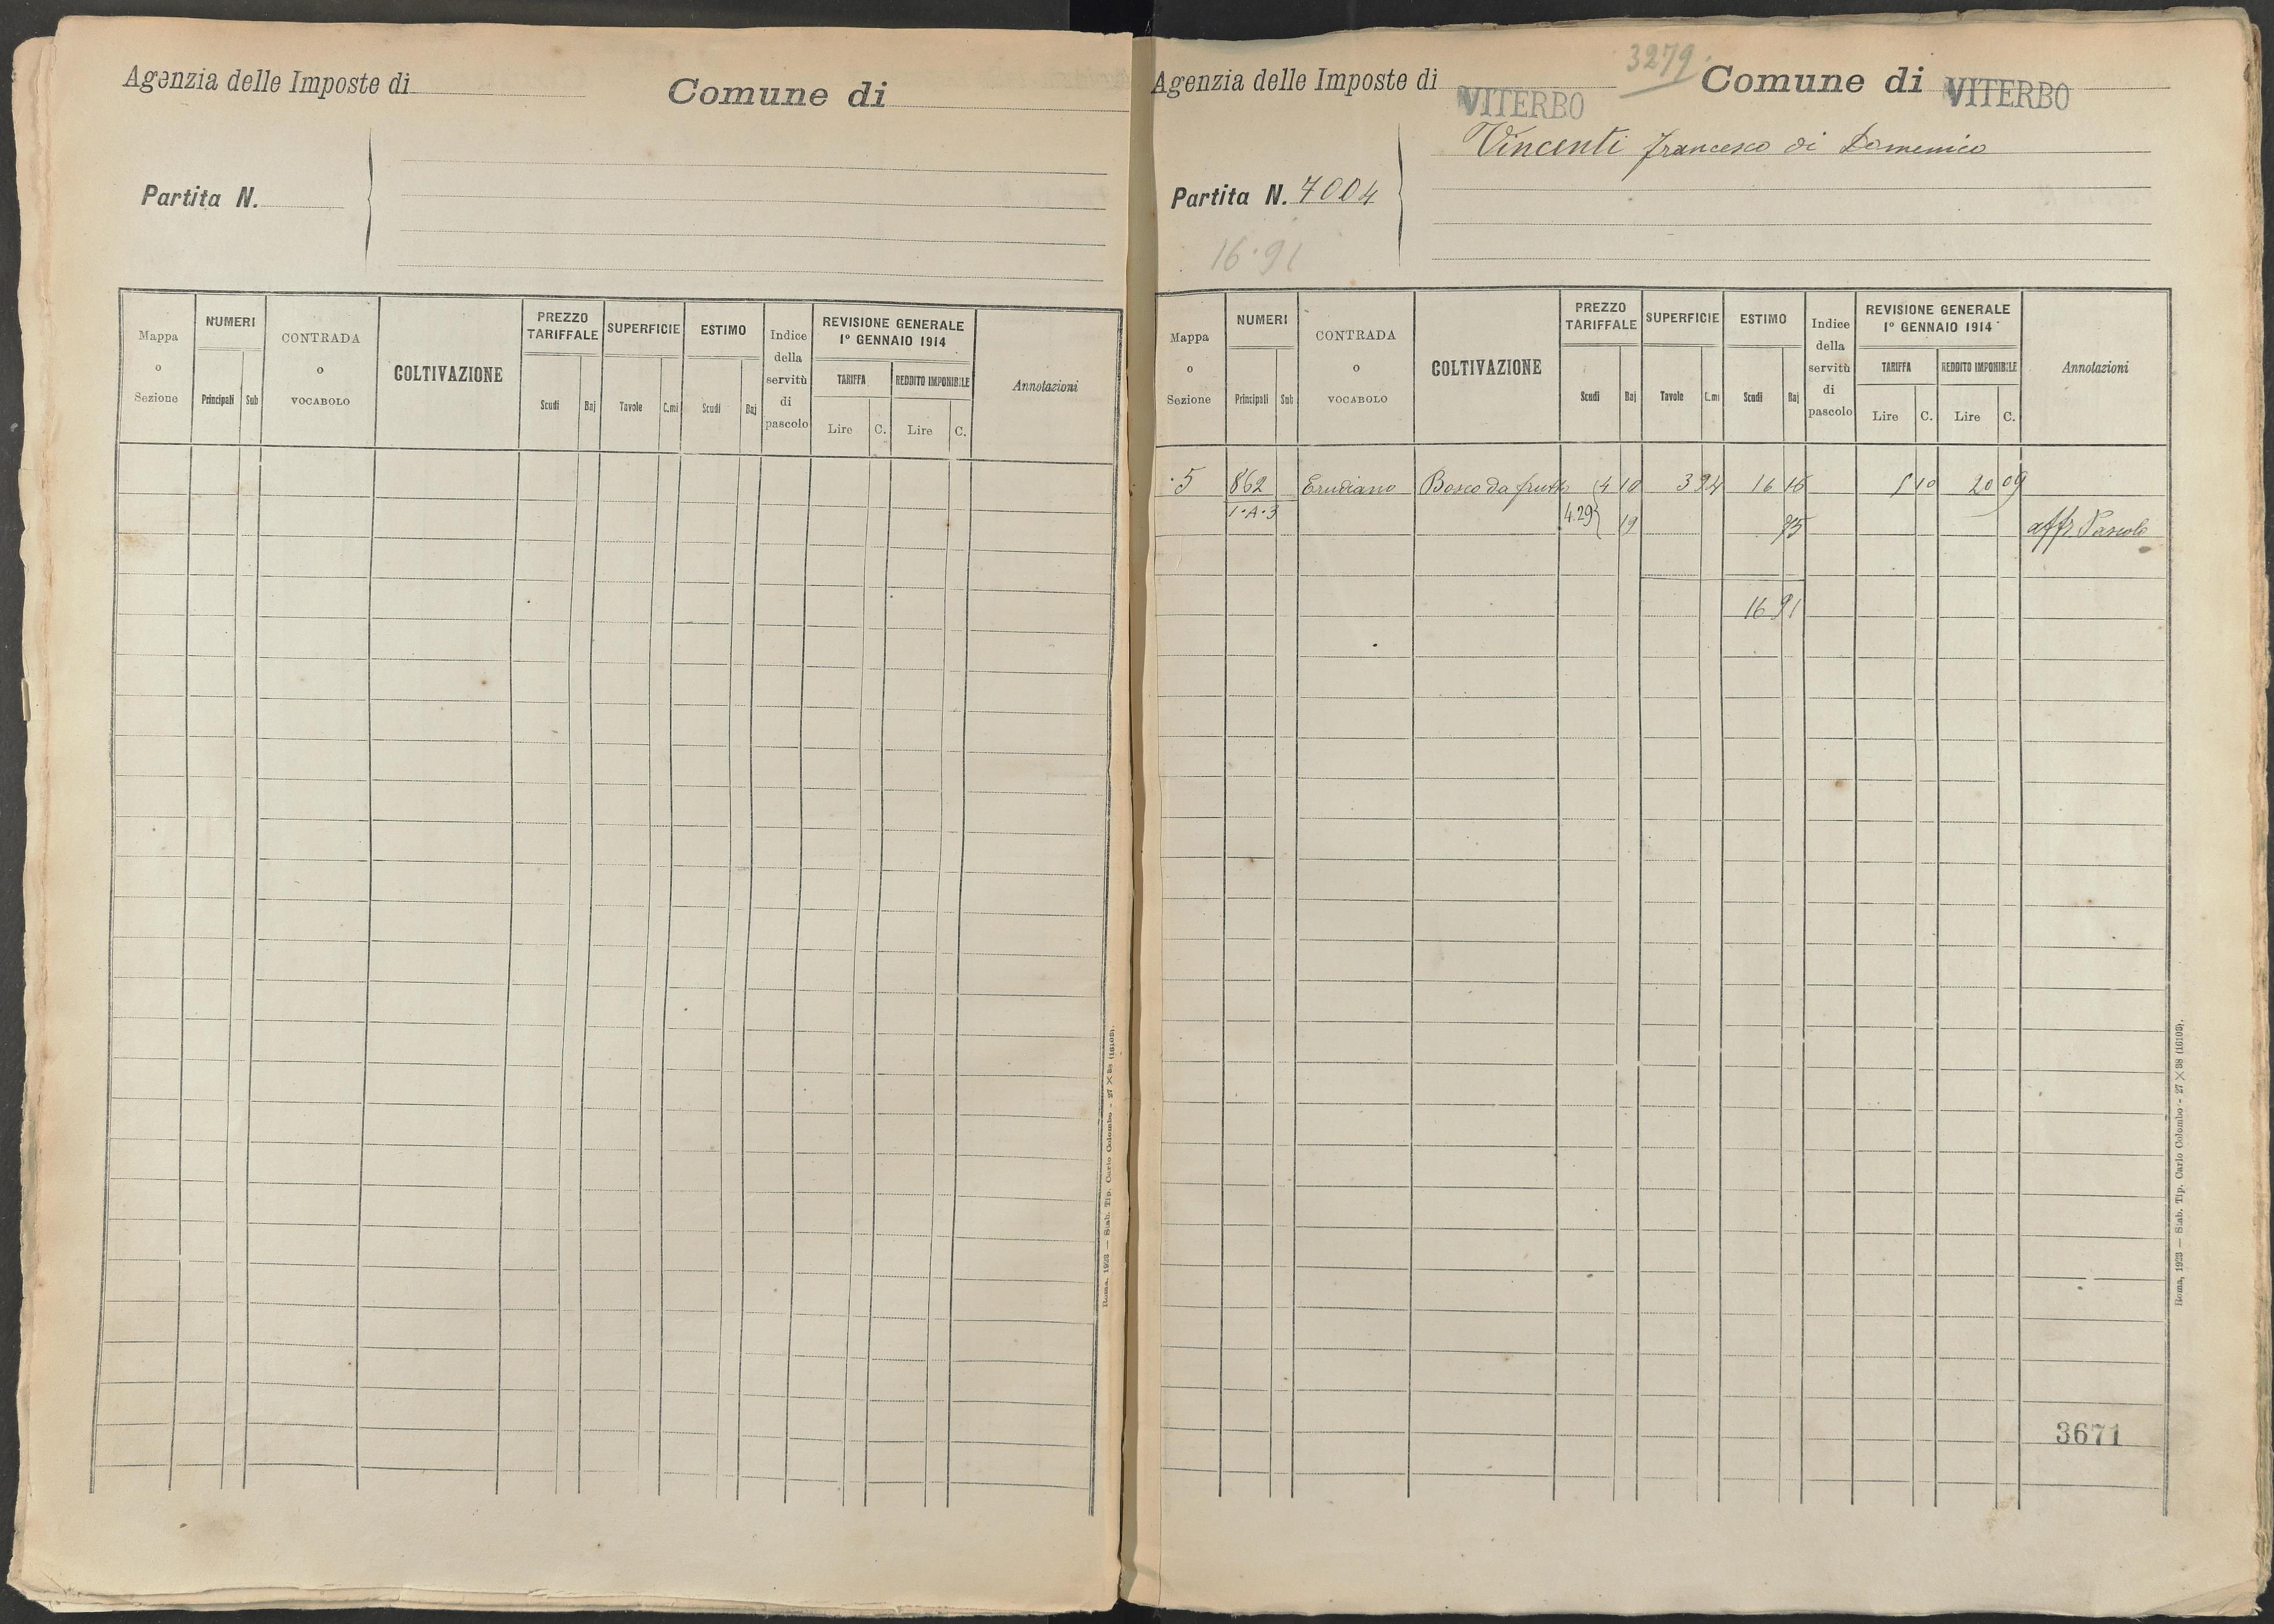 Agenzia delle Imposte di
Comune di
Partita N.
Mappa o Sezione
NUMERI
Principali Sub
CONTRADA o VOCABOLO
COLTIVAZIONE
PREZZO TARIFFALE
Scudi Baj
SUPERFICIE
Tavole C.mi
ESTIMO
Scudi Baj
Indice della servitù di pascolo
REVISIONE GENERALE
1° GENNAIO 1914
TARIFFA REDDITO IMPONIBILE
Lire C. Lire C.
Annotazioni
Roma, 1923 — Stab. Tip. Carlo Colombo - 27 × 38 (16103).
3279
Agenzia delle Imposte di VITERBO
Comune di VITERBO
Vincenti Francesco di Domenico
Partita N. 7004
16.91
Mappa o Sezione
NUMERI
Principali Sub
CONTRADA o VOCABOLO
COLTIVAZIONE
PREZZO TARIFFALE
Scudi Baj
SUPERFICIE
Tavole C.mi
ESTIMO
Scudi Baj
Indice della servitù di pascolo
REVISIONE GENERALE
1° GENNAIO 1914
TARIFFA REDDITO IMPONIBILE
Lire C. Lire C.
Annotazioni
5 862 Erudiano Bosco da frutto 4 10 3 94 16 16 5 10 20 09
1.A.3 4.29 19 75 affr. Pascolo
16 91
3671
Roma, 1923 — Stab. Tip. Carlo Colombo - 27 × 38 (16103).